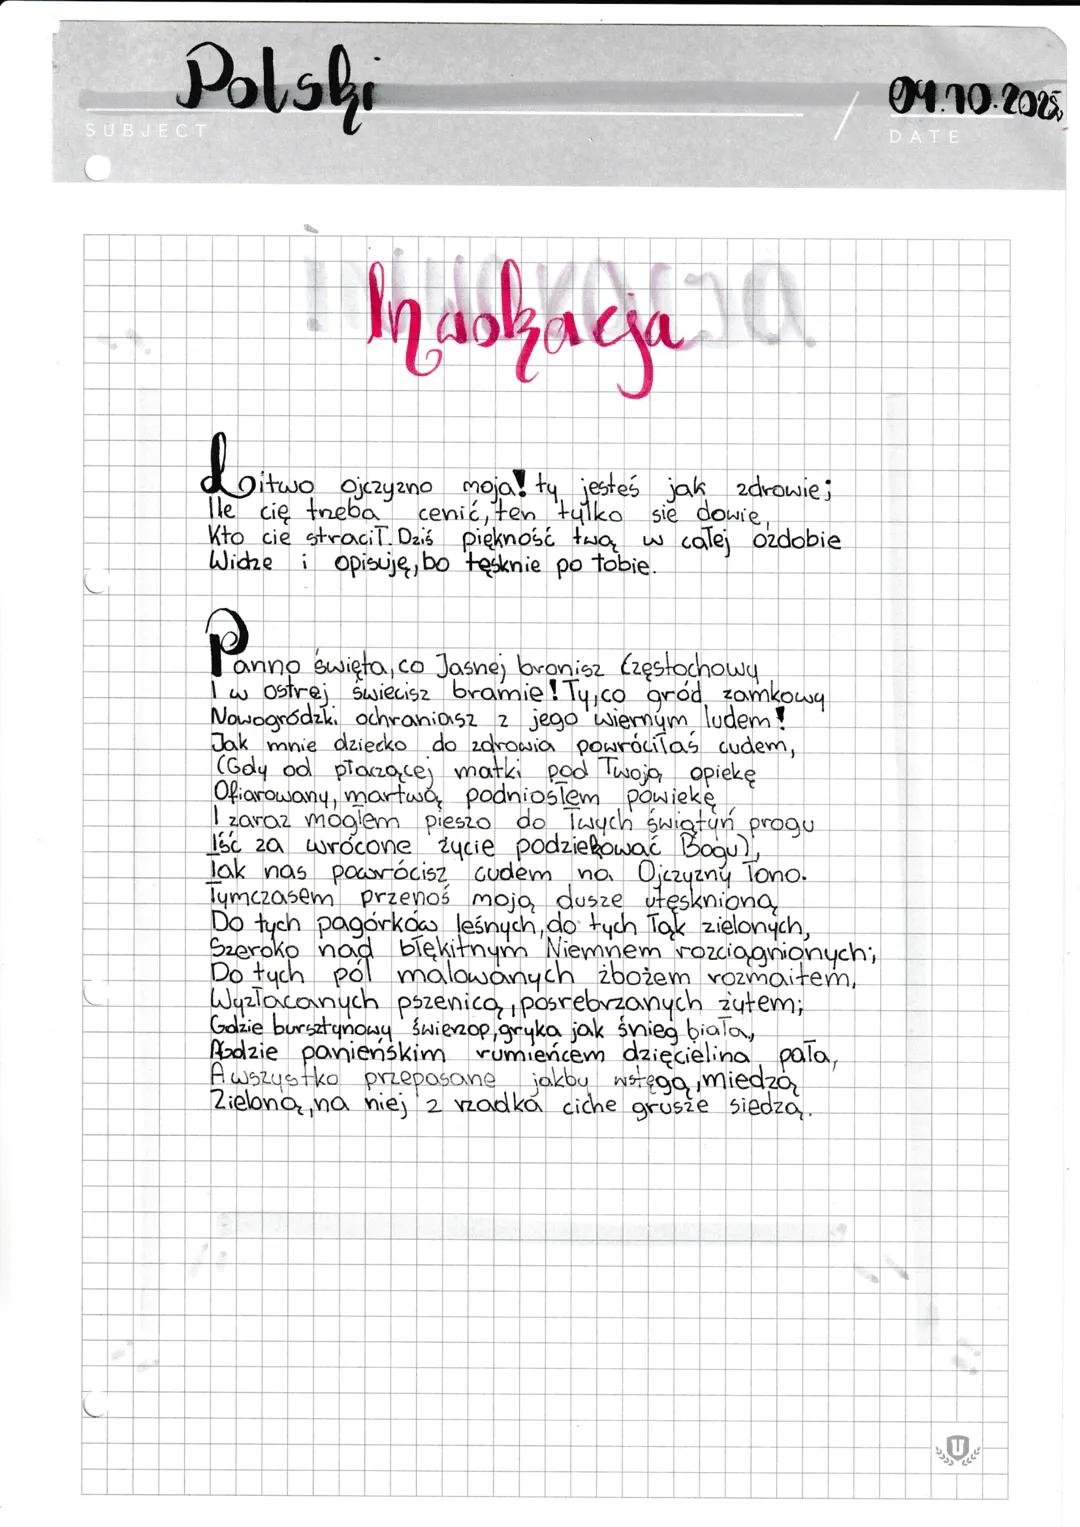 Polski
04.10.2025
SUBJECT
DATE
Inwokacja
Litwo ojczyzno moja! ty jesteś jak zdrowie;
Ile cię trzeba cenić, ten tylko sie dowie,
Kto cie stracił. Dziś piękność twą w całej ozdobie
Widze i opisuję, bo tęsknie po tobie.
Panno święta, co Jasnej bronisz Częstochowy
I w ostrej świecisz bramie! Ty, co gród zamkowy
Nowogródzki ochraniasz z jego wiernym ludem!
Jak mnie dziecko do zdrowia powróciłaś cudem,
(Gdy od płaczącej matki pod Twoją opiekę
Ofiarowany, martwą podniosłem powiekę
I zaraz mogłem pieszo do Twych świątyń progu
Iść za wrócone życie podziękować Bogu),
Tak nas powrócisz cudem na Ojczyzny łono.
Tymczasem przenoś moją dusze utęsknioną
Do tych pagórków leśnych, do tych łąk zielonych,
Szeroko nad błękitnym Niemnem rozciągnionych;
Do tych pól malowanych zbożem rozmaitem,
Wyzłacanych pszenicą, posrebrzanych żytem;
Gdzie bursztynowy świerzop, gryka jak śnieg biała,
Gdzie panieńskim rumieńcem dzięcielina pała,
A wszystko przepasane jakby wstęgą, miedzą
Zieloną, na niej z rzadka ciche grusze siedzą.
U